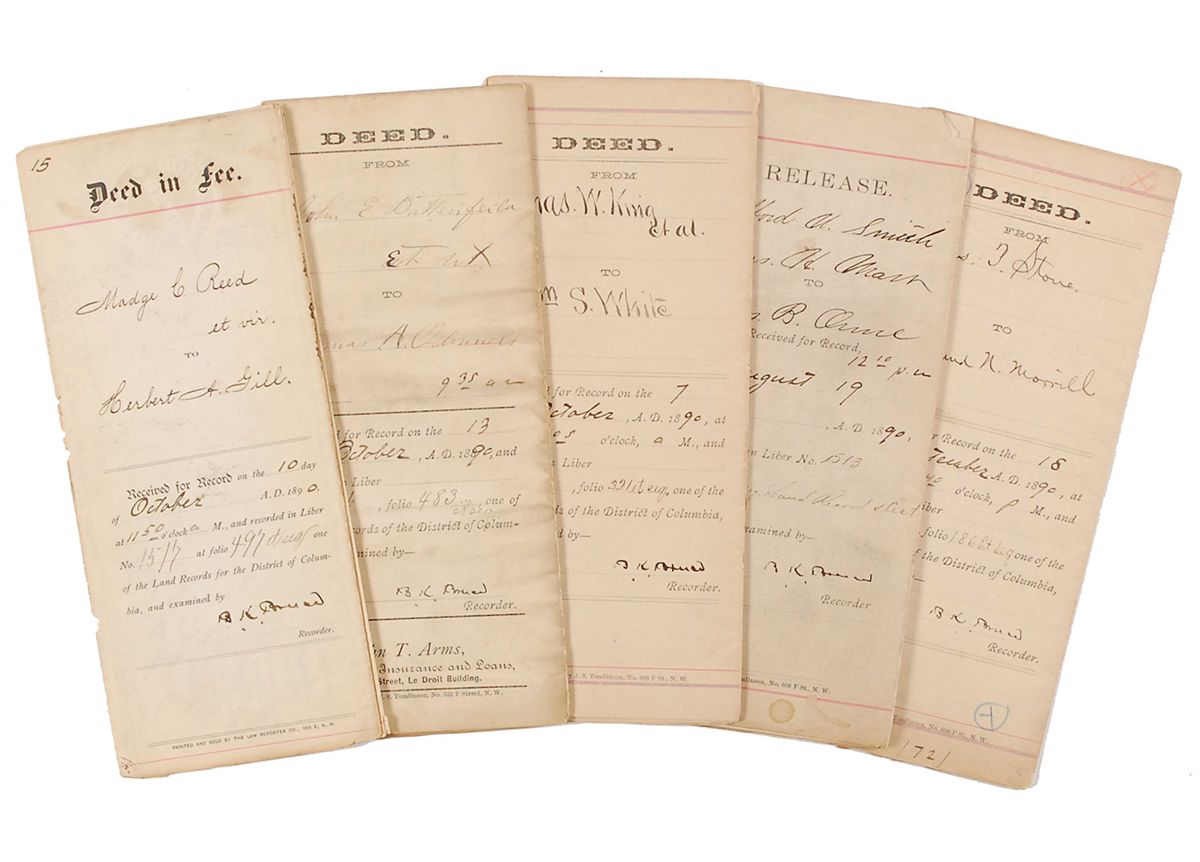 15
Deed in Fee.
Madge C. Reed
et vir.
TO
Herbert A. Gill.
Received for Record on the 10 day
of October A.D. 1890.
at 11 50 o'clock a M., and recorded in Liber
No. 1517 at folio 497 et seq one
of the Land Records for the District of Colum-
bia, and examined by
B. K. Bruce
Recorder.
PRINTED AND SOLD BY THE LAW REPORTER CO., 503 E, N. W.
DEED.
FROM
John E Battenfeild
Et ux
TO
mas A. O'donnell
9 35 a m
for Record on the 13
October , A. D. 1890, and
Liber
, folio 483 , one of
cords of the District of Colum-
mined by—
B. K. Bruce
Recorder.
n T. Arms,
Insurance and Loans,
Street, Le Droit Building.
J. S. Tomlinson, No. 632 F Street, N. W.
DEED.
FROM
has. W. King
et al.
TO
m S. White
for Record on the 7
October , A. D. 1890, at
o'clock, a M., and
Liber
, folio 331 et seq, one of the
ds of the District of Columbia,
by—
B. K. Bruce
Recorder.
y J. S. Tomlinson, No. 608 F St., N. W.
RELEASE.
ford U. Smith
as. H. Mast
TO
s. B. Orme
Received for Record,
12 10 p.m
August 19
, A. D. 1890,
in Liber No. 1513
examined by—
B. K. Bruce
Recorder
mlinson, No. 608 F St., N. W.
X
DEED.
FROM
s. F. Stone.
TO
und N. Morrill
r Record on the 18
A. D. 1890, at
o'clock, P M., and
iber
folio 186 et seq one of the
f the District of Columbia,
B. K. Bruce
Recorder.
Tomlinson, No. 608 F St., N. W.
1721